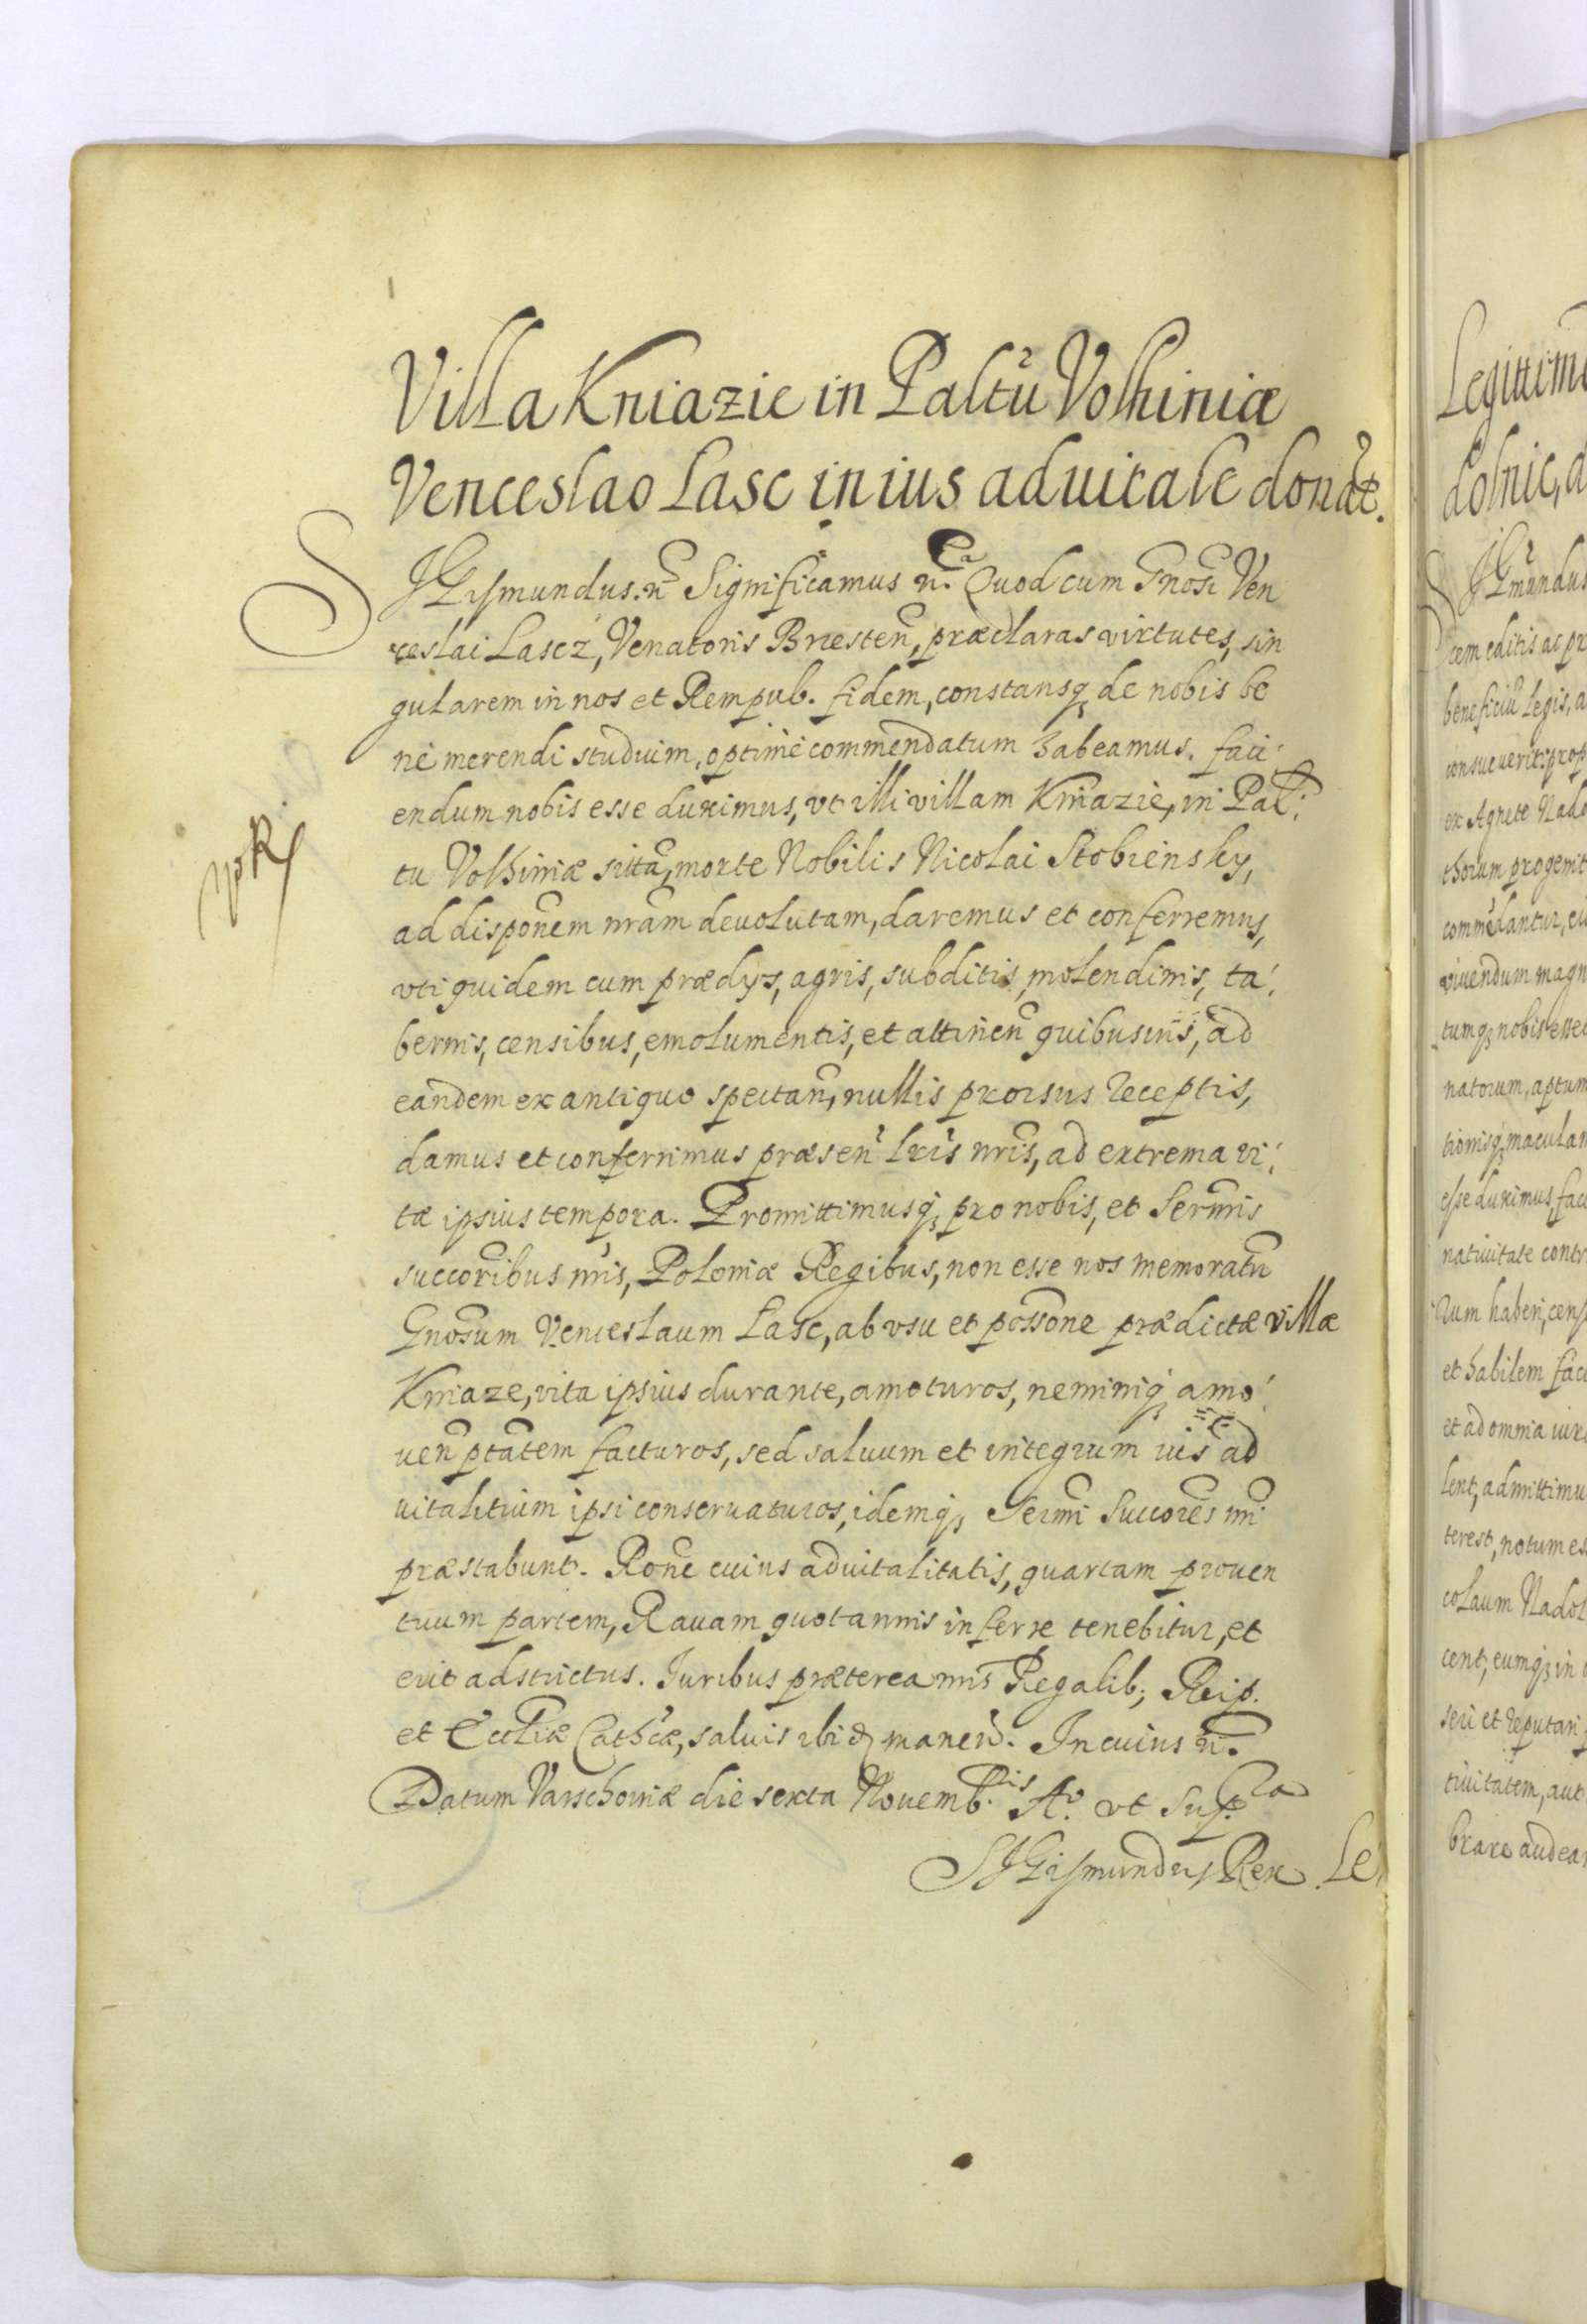 Villa Kniazie in Paltũ Volhiniæ
Venceslao Lasc in ius aduitale donãt.
SIGismundus. ñ Significamus ñ. Quod cum Gnosi Ven
ceslai Lascz, Venatoris Bresteñ, præclaras virtutes, sin
gularem in nos et Rempub. fidem, constansq; de nobis be
ne merendi studuim, optime commendatum habeamus. faci
endum nobis esse duximus, vt illi villam Kniazie, in Pal:
tu Volhiniæ sittã, morte Nobilis Nicolai Stobiensky,
ad disponem nram deuolutam, daremus et conferremus,
vti quidem cum prædys, agris, subditis, molendinis, ta:
bernis, censibus, emolumentis, et attineñ quibusuis, ad
eandem ex antiquo spectañ, nullis prorsus receptis,
damus et conferrimus præseñ lris nris, ad extrema vi:
tæ ipsius tempora. Promittimusq; pro nobis, et Sermis
succoribus nris, Poloniæ Regibus, non esse nos memoratũ
Gnosum Venceslaum Lasc, ab vsu et possone prædictæ villæ
Kniaze, vita ipsius durante, amoturos, neminiq; amo:
ueñ ptatem facturos, sed saluum et integrum ius ad
vitalitium ipsi conseruaturos, idemq; Sermi Succores nri
præstabunt. Rone cuius aduitalitatis, quartam prouen
tuum partem, Rauam quotannis inferre tenebitur, et
erit adstrictus. Iuribus præterea nris Regalib; Reip.
et Eccliæ Cathcæ, saluis ibid maneñ. In cuius ñ.
Datum Varschoviæ die sexta Nouemb.ris Ao. vt Sup.ra
SIGismundus Rex Le
Legittim
dolnic, a
SIGmundus
cem editis ac pr
beneficiũ legis, a
consueuerit: prop
ex Agnete Nado
thorum progenit
commẽdantur, eu
viuendum magn
tumq; nobis esse
natorum, aptum
tionisq; maculam
esse duximus, fac
natiuitate contr
rum haberi, cens
et habilem fac
et ad omnia iura
lent, admittimu
terest, notum es
colaum Nadol
cent, eumq; in
seri et reputari
tiuitatem, aut
brare audea